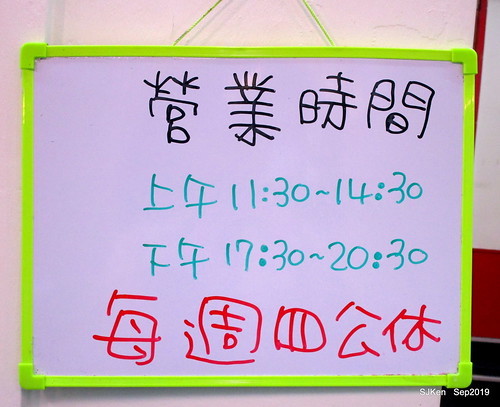 營業時間
上午11:30~14:30
下午17:30~20:30
每週四公休
SJKen Sep2019